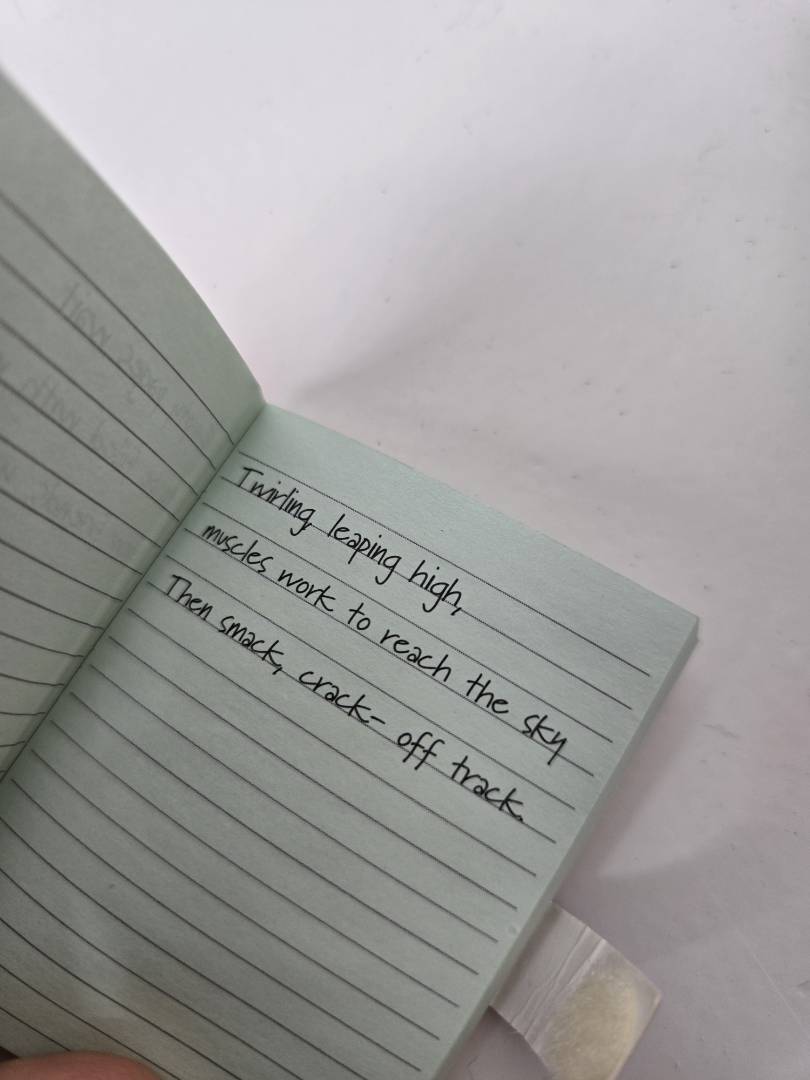 Twirling, leaping high,
muscles work to reach the sky
Then smack, crack- off track.